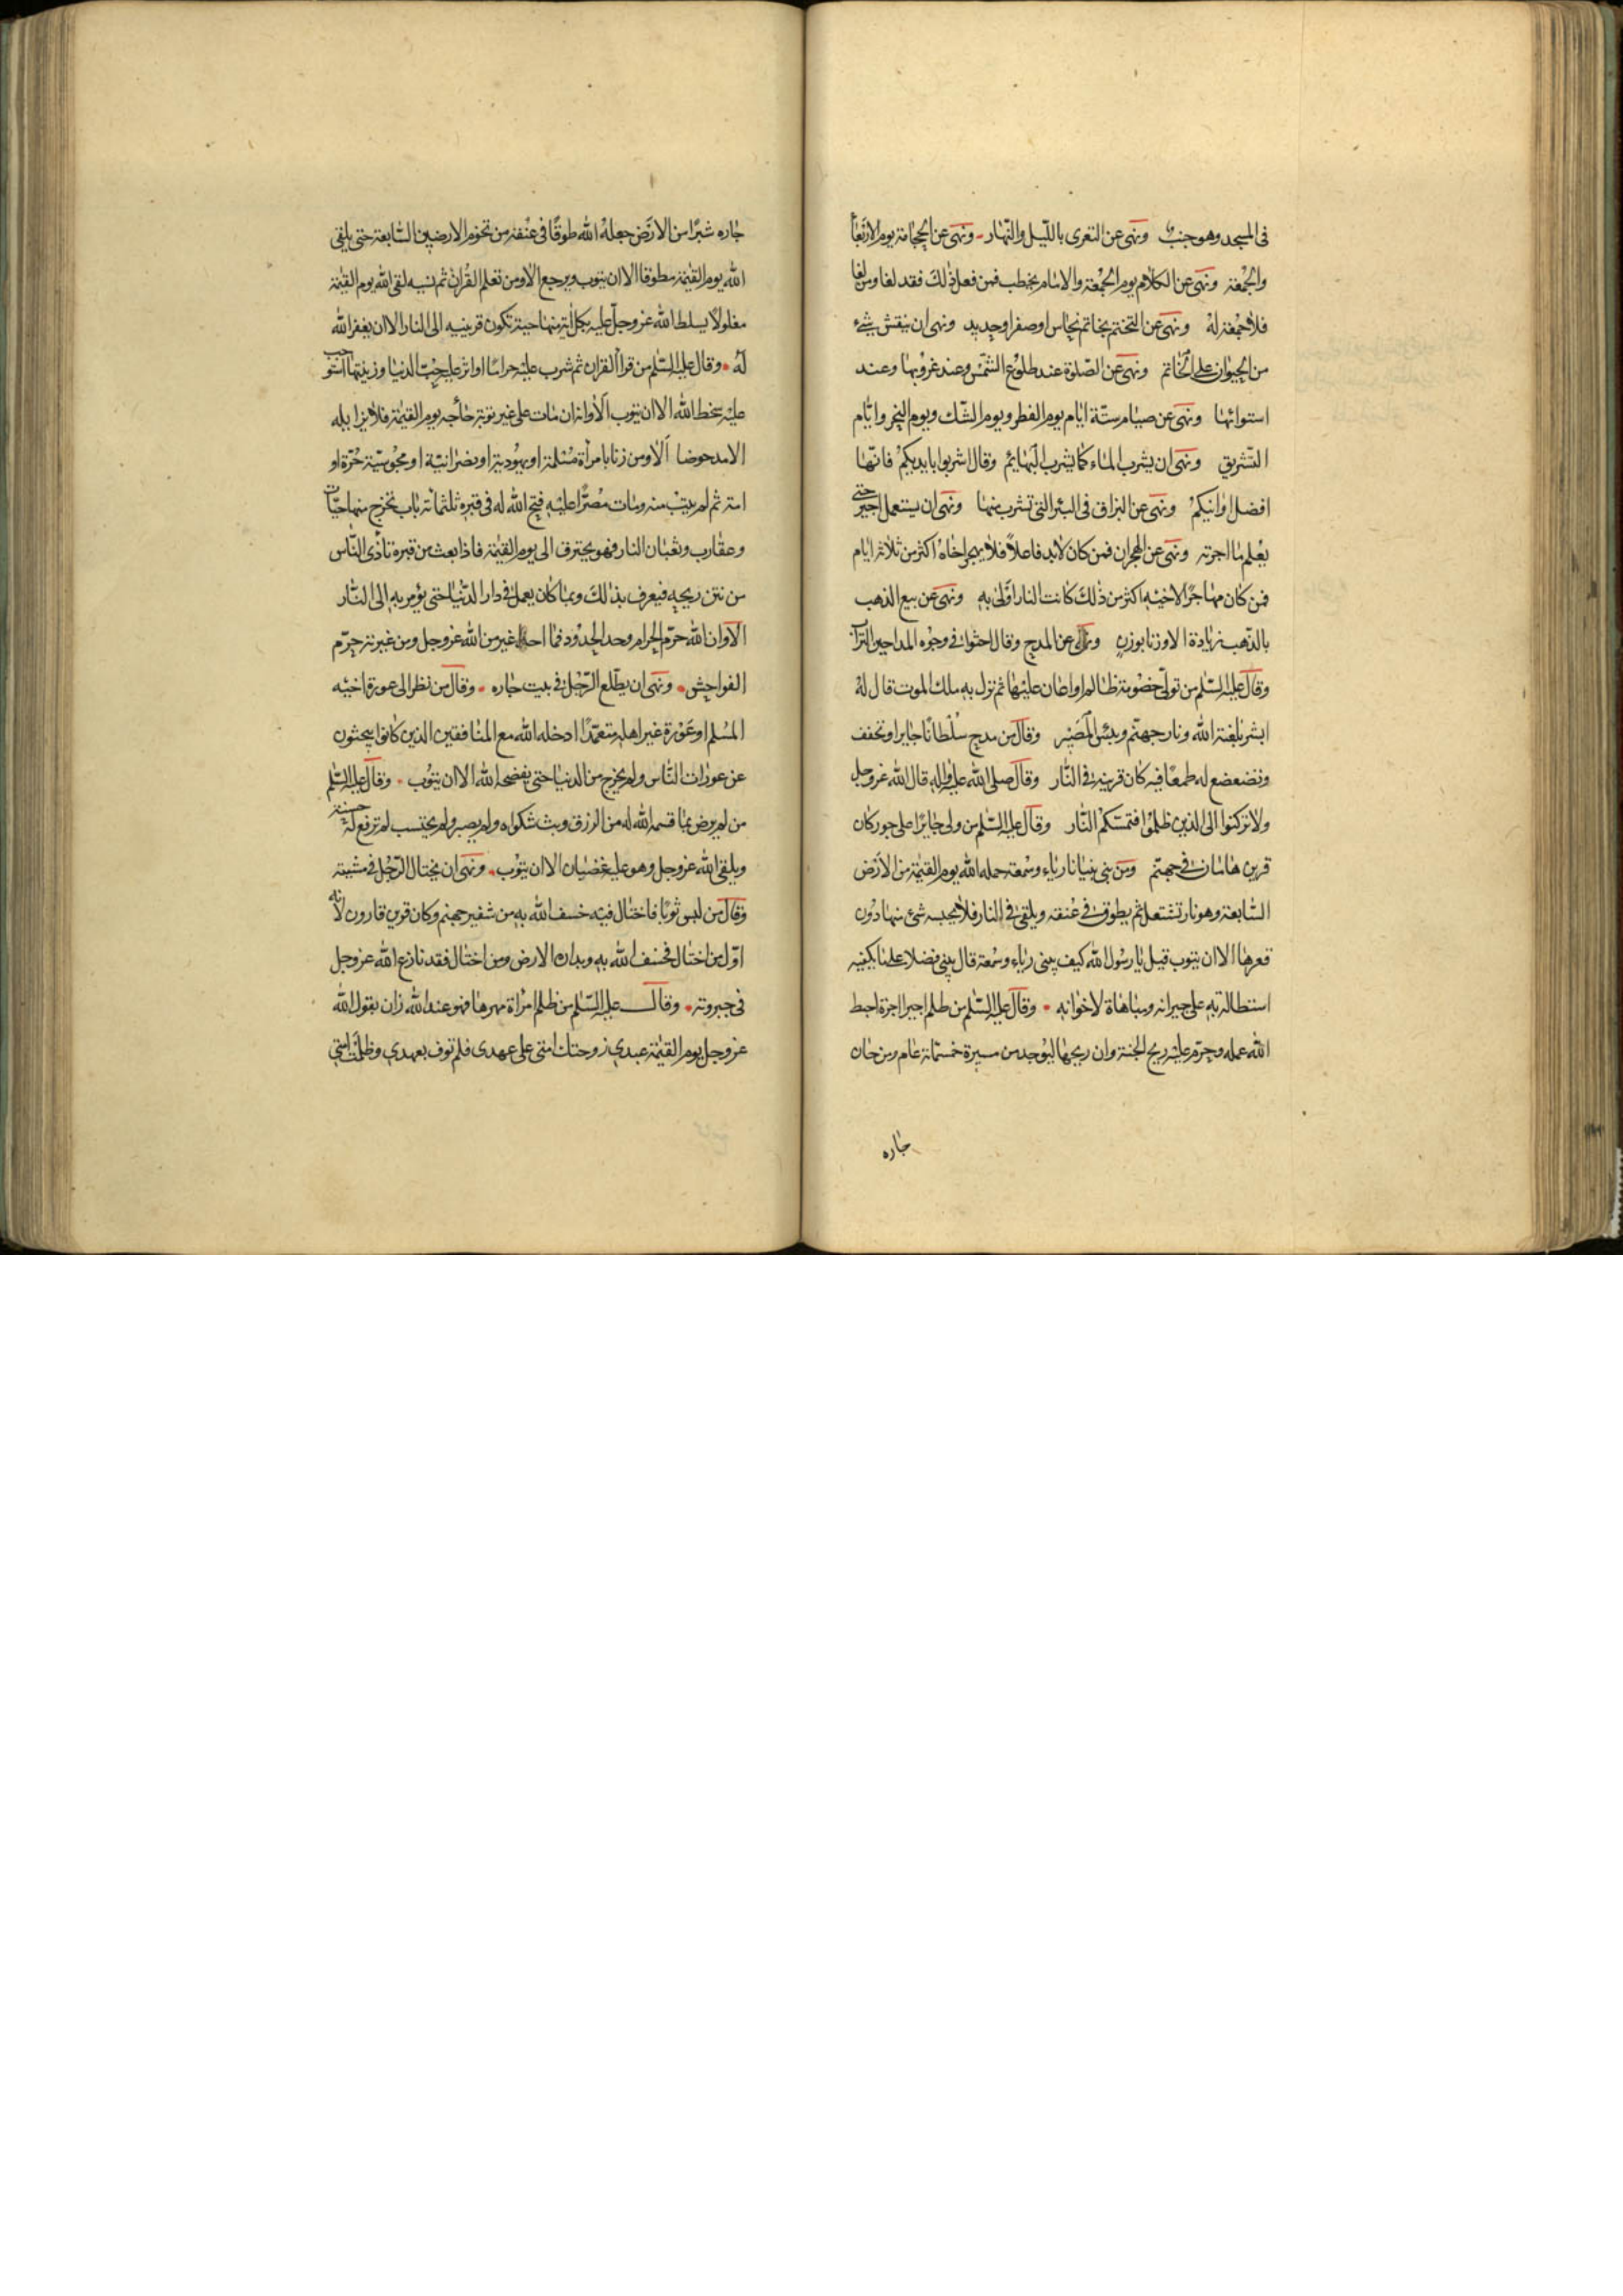 فى المسجد وهو جنب ونهى عن التعرى بالليل والنهار ونهى عن الحجامة يوم الاربعا
والجمعة ونهى عن الكلام يوم الجمعة والامام يخطب فمن فعل ذلك فقد لغا ومن لغا
فلا جمعة له ونهى عن التختم بخاتم نحاس او صفر او حديد ونهى ان ينقش شىء
من الحيوان على الخاتم ونهى عن الصلوة عند طلوع الشمس وعند غروبها وعند
استوائها ونهى عن صيام ستة ايام يوم الفطر ويوم الشك ويوم النحر وايام
التشريق ونهى ان يشرب الماء كما يشرب البهايم وقال اشربوا بايديكم فانها
افضل اوانيكم ونهى عن البزاق فى البئر التى تشرب منها ونهى ان يستعمل اجير حتى
يعلم ما اجرته ونهى عن الهجران فمن كان لابد فاعلا فلا يهجر اخاه اكثر من ثلاثة ايام
فمن كان مهاجرا لاخيه اكثر من ذلك كانت النار اولى به ونهى عن بيع الذهب
بالذهب زيادة الا وزنا بوزن ونهى عن المدح وقال احثوا فى وجوه المداحين التراب
وقال عليه السلم من تولى خصومة ظالم او اعان عليها ثم نزل به ملك الموت قال له
ابشر بلعنة الله ونار جهنم وبئس المصير وقال من مدح سلطانا جايرا وتخفف
وتضعضع له طمعا فيه كان قرينه فى النار وقال صلى الله عليه واله قال الله عز وجل
ولا تركنوا الى الذين ظلموا فتمسكم النار وقال عليه السلم من ولى جايرا على جور كان
قرين هامان فى جهنم ومن بنى بنيانا رياء وسمعة حمله الله يوم القيمة من الارض
السابعة وهو نار تشتعل ثم يطوق فى عنقه ويلقى فى النار فلا يحبسه شئ منها دون
قعرها الا ان يتوب قيل يا رسول الله كيف يبنى رياء وسمعة قال يبنى فضلا على ما يكفيه
استطالة به على جيرانه ومباهاة لاخوانه وقال عليه السلم من ظلم اجيرا اجرة احبط
الله عمله وحرم عليه ريح الجنة وان ريحها ليوجد من مسيرة خمسمائة عام ومن خان
جاره
جاره شبرا من الارض جعله الله طوقا فى عنقه من تخوم الارضين السابعة حتى يلقى
الله يوم القيمة مطوقا الا ان يتوب ويرجع الا ومن تعلم القران ثم نسيه لقى الله يوم القيمة
مغلولا يسلط الله عز وجل عليه بكل اية منها حية تكون قرينه الى النار الا ان يغفر الله
له وقال عليه السلم من قرا القران ثم شرب عليه حراما او اثر عليه حب الدنيا وزينتها استوجب
عليه سخط الله الا ان يتوب الا وانه ان مات على غير توبة حاجه يوم القيمة فلا يزايله
الا مدحوضا الا ومن زنا بامراة مسلمة او يهودية او نصرانية او مجوسية حرة او
امة ثم لم يتب منه ومات مصرا عليه فتح الله له فى قبره ثلثمائة باب تخرج منها حيات
وعقارب وثعبان النار فهو يحترق الى يوم القيمة فاذا بعث من قبره تاذى الناس
من نتن ريحه فيعرف بذلك وبما كان يعمل فى دار الدنيا حتى يؤمر به الى النار
الا وان الله حرم الحرام وحد الحدود فما احد اغير من الله عز وجل ومن غيرته حرم
الفواحش ونهى ان يطلع الرجل فى بيت جاره وقال من نظر الى عورة اخيه
المسلم او عورة غير اهله متعمدا ادخله الله مع المنافقين الذين كانوا يبحثون
عن عورات الناس ولم يخرج من الدنيا حتى يفضحه الله الا ان يتوب وقال عليه السلم
من لم يرض بما قسمه الله له من الرزق وبث شكواه ولم يصبر ولم يحتسب لم ترفع له حسنة
ويلقى الله عز وجل وهو عليه غضبان الا ان يتوب ونهى ان يختال الرجل فى مشيته
وقال من لبس ثوبا فاختال فيه خسف الله به من شفير جهنم وكان قرين قارون لانه
اول من اختال فخسف الله به وبداره الارض ومن اختال فقد نازع الله عز وجل
فى جبروته وقال عليه السلم من ظلم امراة مهرها فهو عند الله زان يقول الله
عز وجل يوم القيمة عبدى زوجتك امتى على عهدى فلم توف بعهدى وظلمت امتى